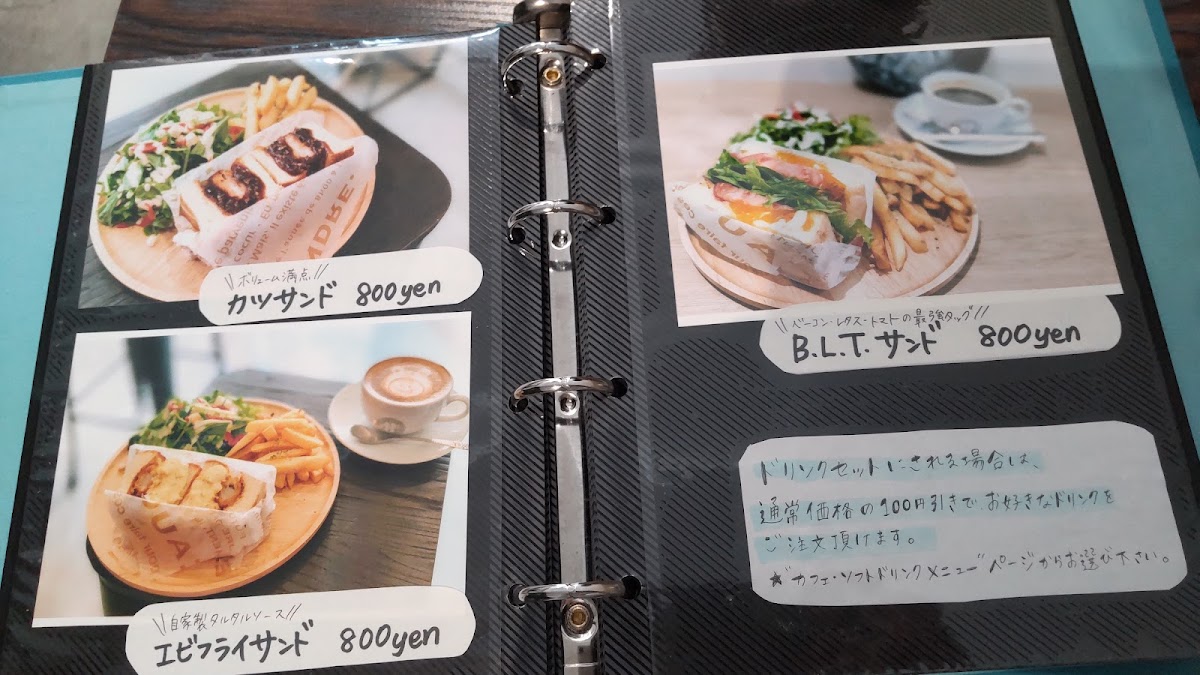 \\ボリューム満点//
カツサンド 800yen
\\自家製タルタルソース//
エビフライサンド 800yen
\\ベーコン・レタス・トマトの最強タッグ//
B.L.T.サンド 800yen
ドリンクセットにされる場合は、
通常価格の100円引きで、お好きなドリンクを
ご注文頂けます。
★"カフェ・ソフトドリンクメニュー"ページからお選び下さい。